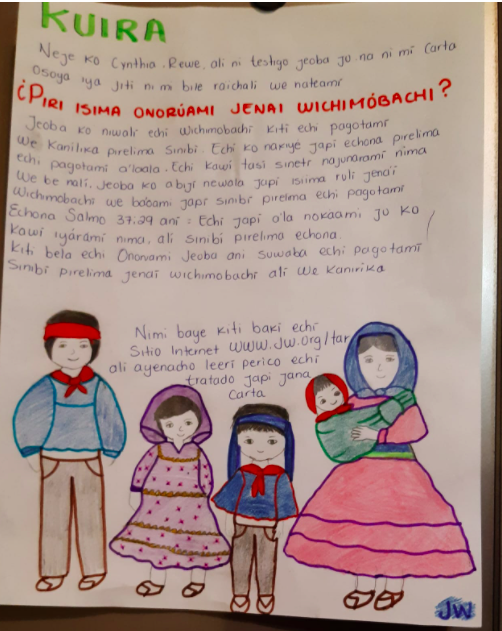 KUIRA
Neje ko Cynthia Rewe, ali ni teshgo jeoba ju na ni mi Carta
Osoya iya jiti ni mi bile raichali we nateami
¿PIRI ISIMA ONORÚAMI JENAI WICHIMÓBACHI?
Jeoba ko niwali echi wichimobachi kiti echi pagotami
We Kanilika pirelima sinibi. Echi ko nakiye japi echona pirelima
echi pagotami a'loala. Echi kawi tasi sinetr najunarami nima
We be nali. Jeoba ko abiji newola japi isiima ruli jenai
Wichimobachi we babami japi sinibi pirelma echi pagotami
Echona Salmo 37:29 ani: Echi japi a'la nokaami ju ko
kawi iyárami nima, ali sinibi pirelima echona.
Kiti bela echi Onoruami Jeoba ani suwaba echi pagotami
Sinibi pirelima jenai wichimobachi ali We Kanirika
Nimi baye kiti baki echi
Sitio Internet WWW.JW.Org/tar
ali ayenacho leeri perico echi
tratado japi jana
Carta
JW